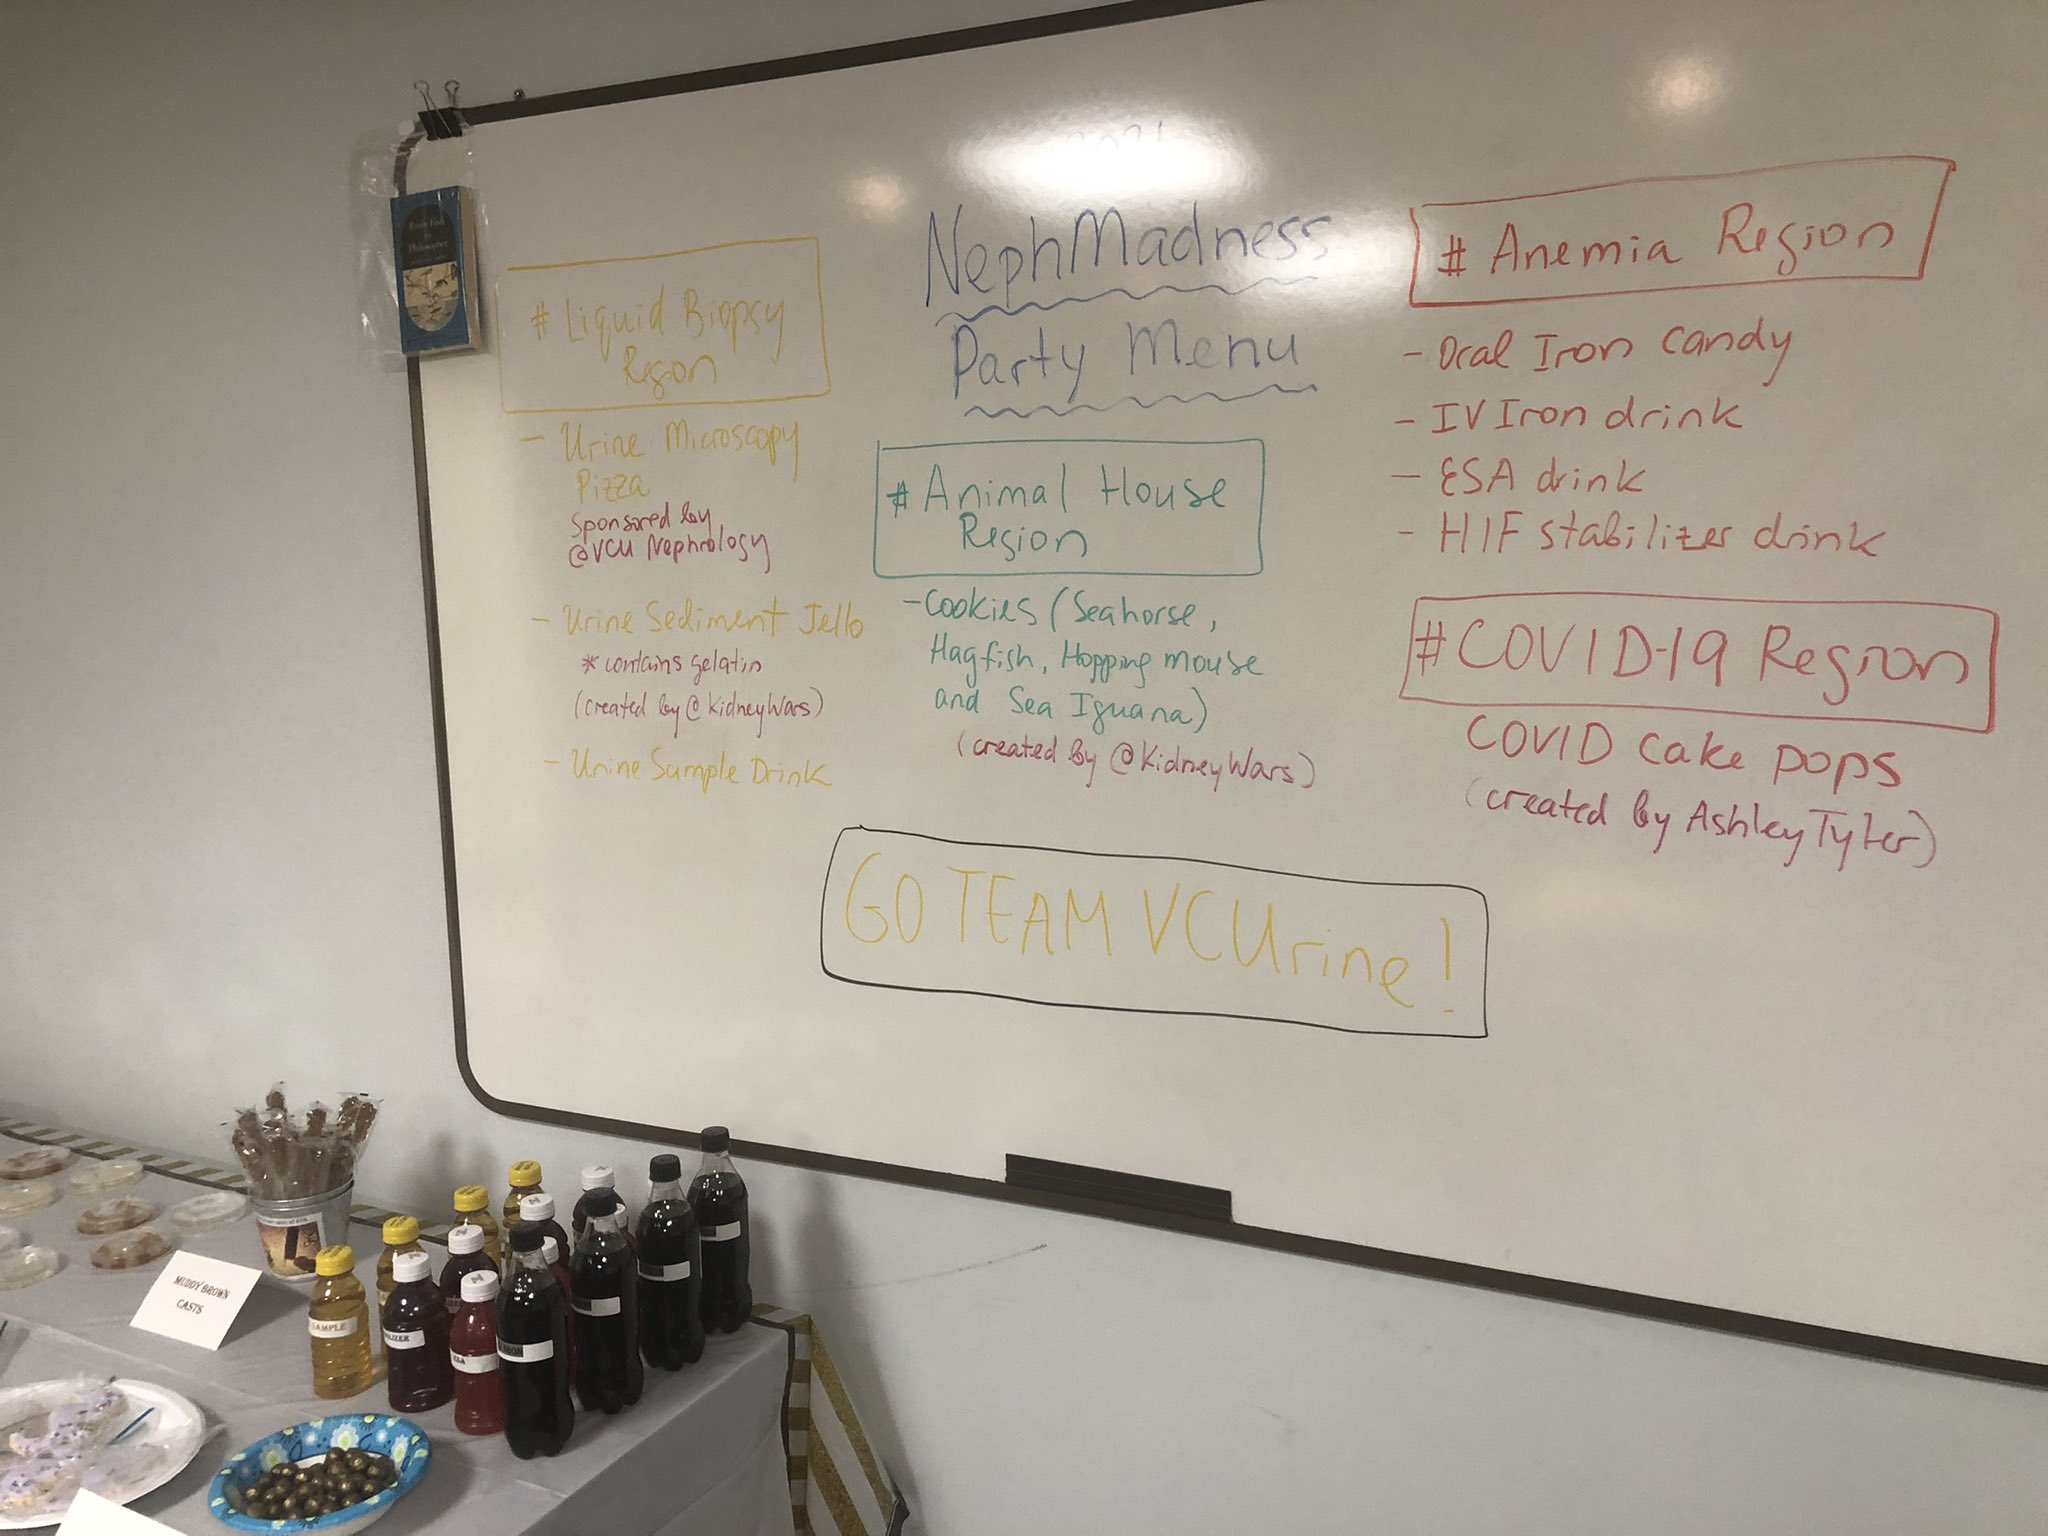 2021
NephMadness
Party Menu
# Liquid Biopsy
Region
- Urine Microscopy
Pizza
Sponsored by
@VCU Nephrology
- Urine Sediment Jello
*contains gelatin
(created by @KidneyWars)
- Urine Sample Drink
# Animal House
Region
- Cookies (Seahorse,
Hagfish, Hopping mouse
and Sea Iguana)
(created by @KidneyWars)
# Anemia Region
- Oral Iron candy
- IV Iron drink
- ESA drink
- HIF stabilizer drink
#COVID-19 Region
COVID cake pops
(created by Ashley Tyler)
GO TEAM VCUrine!
From Fish
to
Philosopher
MUDDY BROWN
CASTS
SAMPLE
ESA
IRON